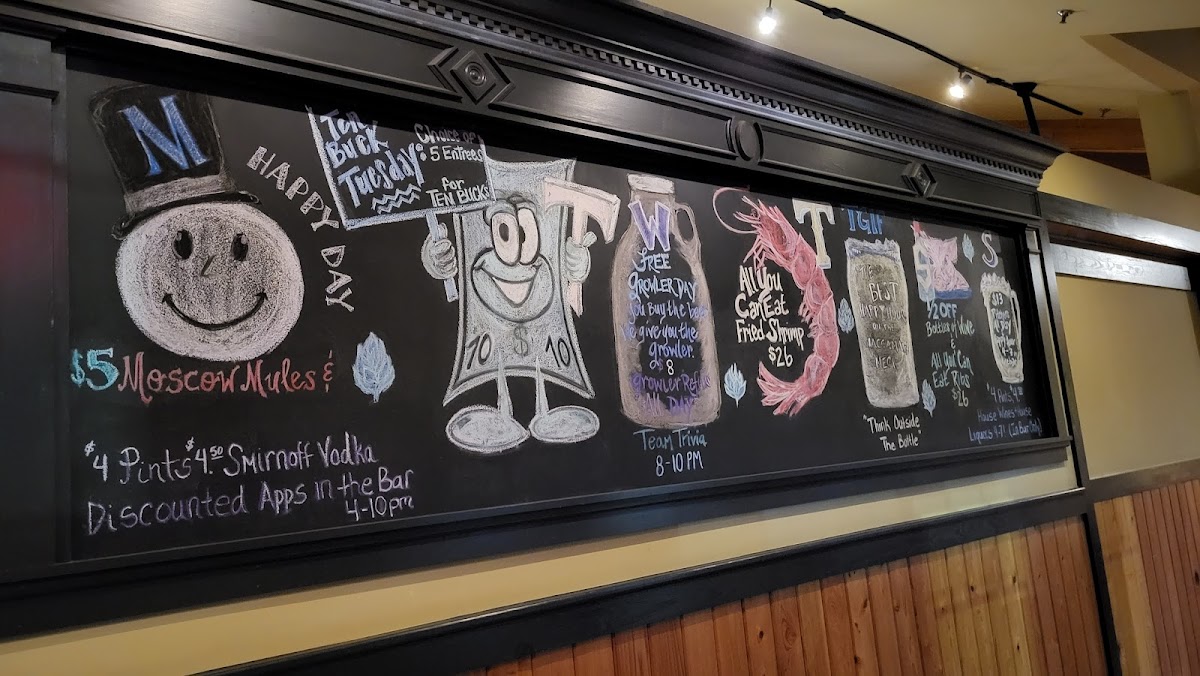 M
HAPPY DAY
$5 Moscow Mules &
$4 Pints $4.50 Smirnoff Vodka
Discounted Apps in the Bar
4-10pm
Ten
Buck
Tuesday:
Choice of
5 Entrees
for
TEN BUCKS
T
10 $ 10
W
FREE
GROWLER DAY
You Buy the
we give you the
growler.
$8
Growler Refills
All DAY
Team Trivia
8-10 PM
T
All You
Can Eat
Fried Shrimp
$26
TGIF
BEST
HAPPY HOUR
"Think Outside
The Bottle"
1/2 OFF
Bottles of Wine
&
All You Can
Eat Ribs
$26
S
$13
"4 Pints, 4.50
House Wines House
Liquors 4-7" (In Bar Only)